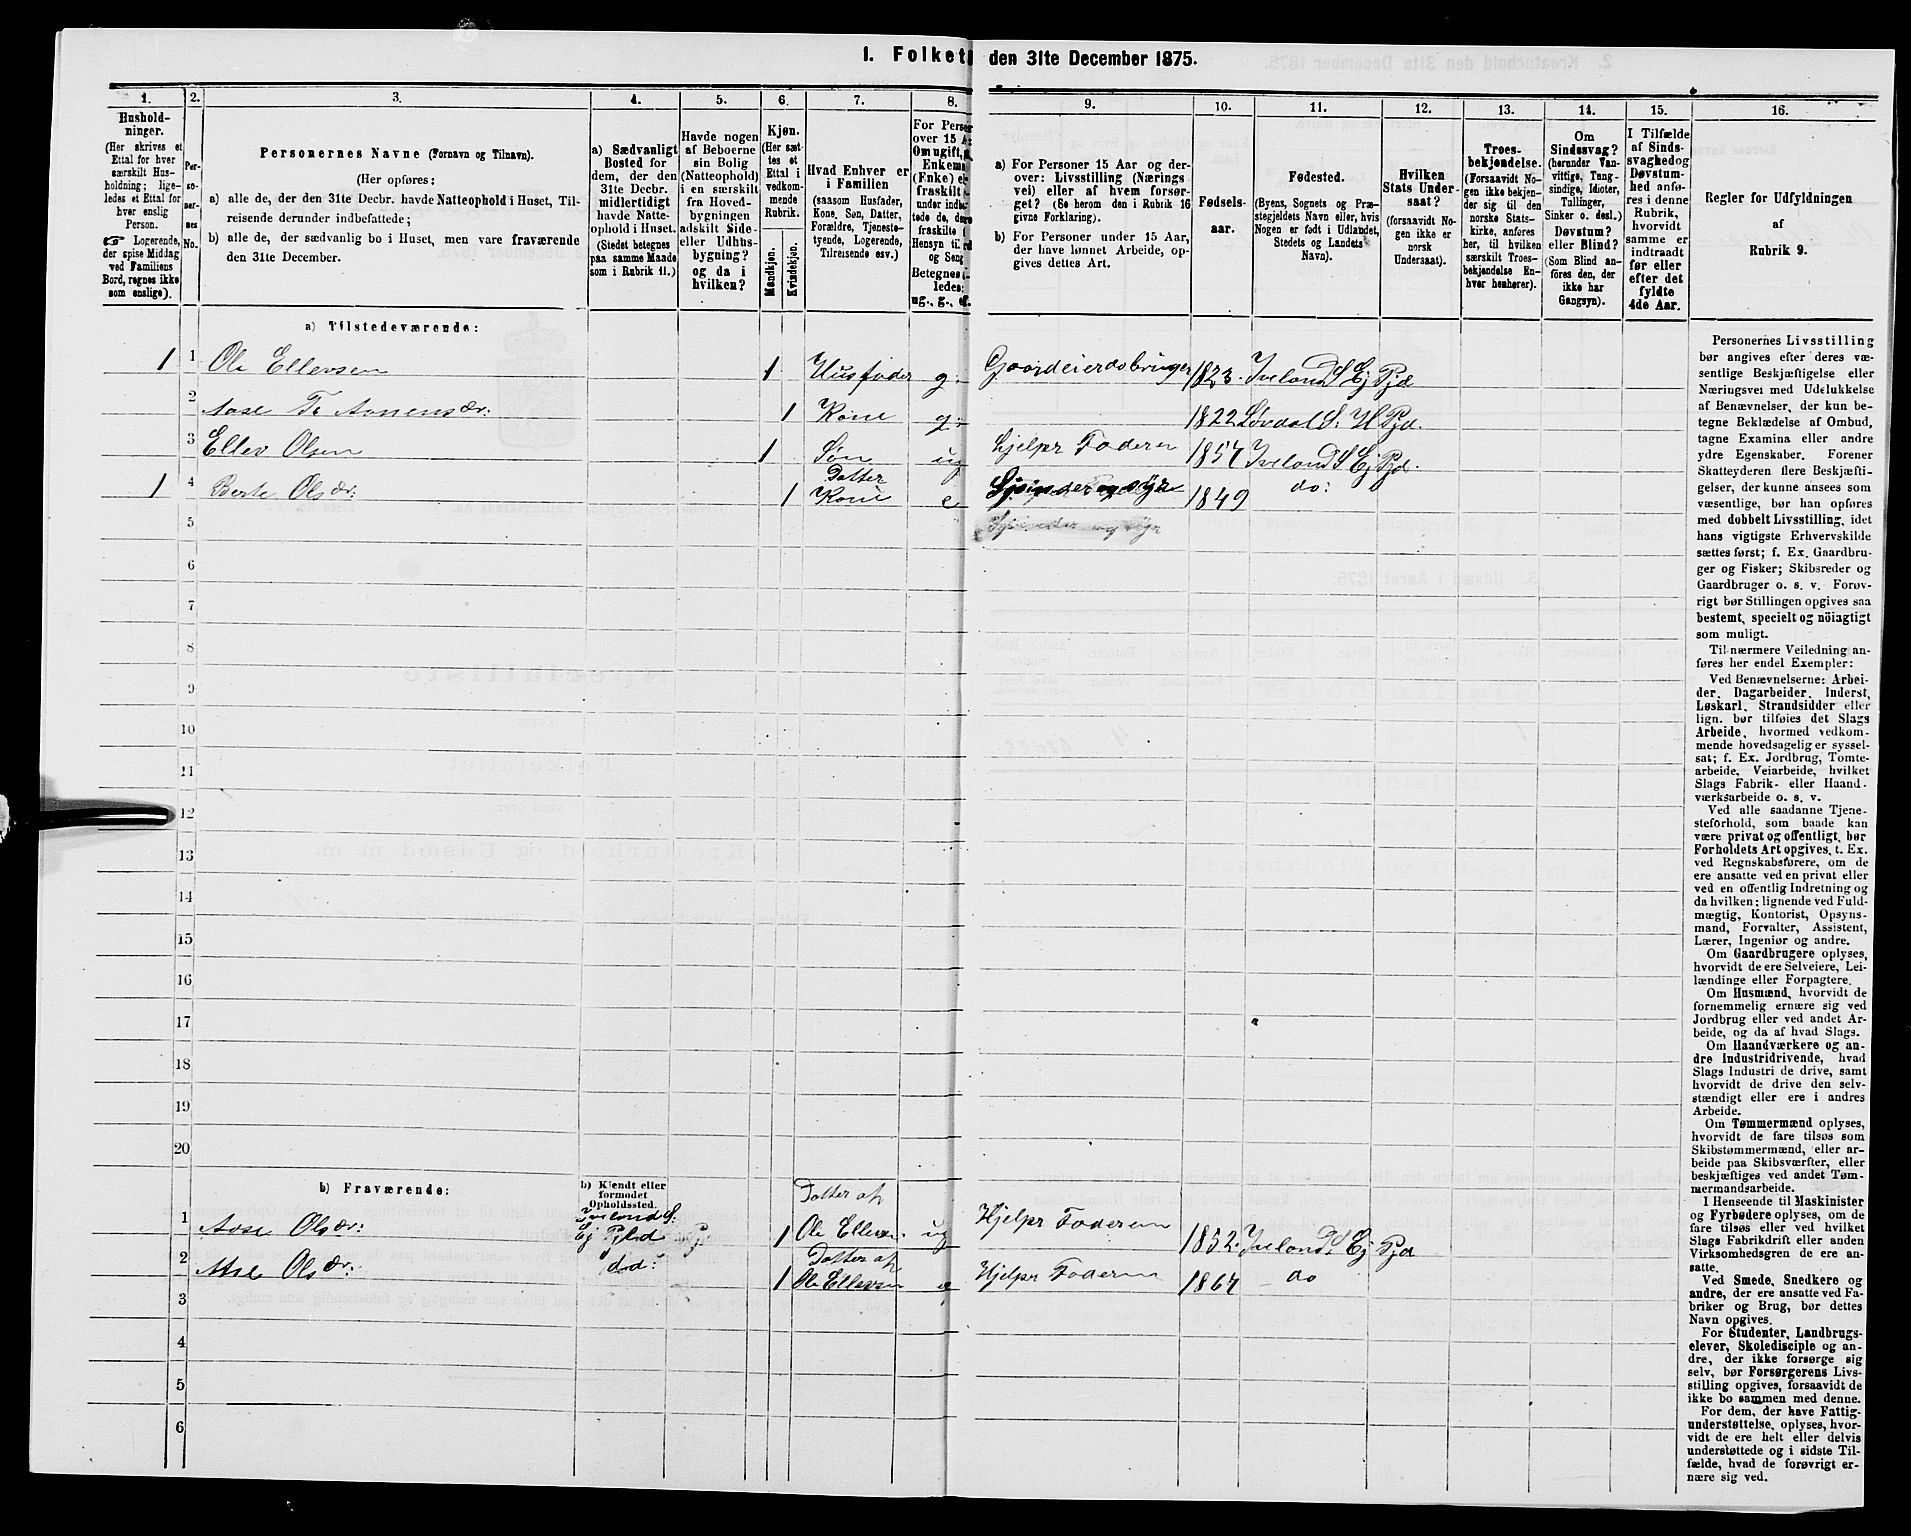 1. Folket den 31te December 1875.
1. 2. 3. 4. 5. 6. 7. 8. 9. 10. 11. 12. 13. 14. 15. 16.
Hushold-
ninger.
(Her skrives et
Ettal for hver
særskilt Hus-
holdning; lige-
ledes et Ettal for
hver enslig
Person.
Logerende,
der spise Middag
ved Familiens
Bord, regnes ikke
som enslige).
Per-
so-
ner-
nes
No.
Personernes Navne (Fornavn og Tilnavn).
(Her opføres:
a) alle de, der den 31te Decbr. havde Natteophold i Huset, Til-
reisende derunder indbefattede;
b) alle de, der sædvanlig bo i Huset, men vare fraværende
den 31te December.
a) Sædvanligt
Bosted for
dem, der den
31te Decbr.
midlertidigt
havde Natte-
ophold i Huset.
(Stedet betegnes
paa samme Maade
som i Rubrik 11.)
Havde nogen
af Beboerne
sin Bolig
(Natteophold)
i en særskilt
fra Hoved-
bygningen
adskilt Side-
eller Udhus-
bygning?
og da i
hvilken?
Kjøn.
(Her sæt-
tes et
Ettal i
vedkom-
mende
Rubrik.
Mandkjøn.
Kvindekjøn.
Hvad Enhver er
i Familien
(saasom Husfader,
Kone, Søn, Datter,
Forældre, Tjeneste-
tyende, Logerende,
Tilreisende osv.)
For Perso
over 15 A
Om ugift,
Enkema
(Enke) e
fraskilt
under indbe
tede de, der
fraskilte
Hensyn til
og Seng
Betegnes
ledes:
ug., g., e.
a) For Personer 15 Aar og der-
over: Livsstilling (Nærings
vei) eller af hvem forsør-
get? (Se herom den i Rubrik 16
givne Forklaring).
b) For Personer under 15 Aar,
der have lønnet Arbeide, op-
gives dettes Art.
Fødsels-
aar.
Fødested.
(Byens, Sognets og Præ-
stegjeldets Navn eller, hvis
Nogen er født i Udlandet,
Stedets og Landets
Navn).
Hvilken
Stats Under-
saat?
(forsaavidt No-
gen ikke er
norsk
Undersaat).
Troes-
bekjendelse.
(Forsaavidt No-
gen ikke bekjen-
der sig til den
norske Stats-
kirke, anføres
her, til hvilken
særskilt Troes-
bekjendelse En-
hver henhører).
Om
Sindssvag?
(herunder Van-
vittige, Tung-
sindige, Idioter,
Tullinger,
Sinker o. desl.)
Døvstum?
eller Blind?
(Som Blind an-
føres den, der
ikke har
Gangsyn).
I Tilfælde
af Sinds-
svaghed og
Døvstum-
hed anfø-
res i denne
Rubrik,
hvorvidt
samme er
indtraadt
før eller
efter det
fyldte
4de Aar.
Regler for Udfyldningen
af
Rubrik 9.
a) Tilstedeværende:
1 1 Ole Ellevsen 1 Husfader g. Gaardeier 1823. Iveland S Ej Pjd
2 Aase Tr 1 Kone g. 1822 S. H Pjd.
3 Ellev Olsen 1 Søn ug Hjelpr Faderen 1857 Iveland S Ej Pjd.
1 4 Berte Olsdr. 1 Datter Kone e Spinder og syr 1849 do:
5 Spinder og syr
6
7
8
9
10
11
12
13
14
15
16
17
18
19
20
b) Fraværende:
b) Kjendt eller
formodet
Opholdssted.
1 Aase Olsdr: Iveland S. Ej Pjld 1 Datter af Ole Ellevsen ug Hjelpr Faderen 1852. Iveland S. Ej Pjd
2 Olsdr: do: 1 Datter af Ole Ellevsen Hjelpr Faderen 1867 do
3
4
5
6
Personernes Livsstilling
bør angives efter deres væ-
sentlige Beskjæftigelse eller
Næringsvei med Udelukkelse
af Benævnelser, der kun be-
tegne Beklædelse af Ombud,
tagne Examina eller andre
ydre Egenskaber. Forener
Skatteyderen flere Beskjæfti-
gelser, der kunne ansees som
væsentlige, bør han opføres
med dobbelt Livsstilling, idet
hans vigtigste Erhvervskilde
sættes først; f. Ex. Gaardbru-
ger og Fisker; Skibsreder og
Gaardbruger o. s. v. Forøv-
rigt bør Stillingen opgives saa
bestemt, specielt og nöiagtigt
som muligt.
Til nærmere Veiledning an-
føres her endel Exempler:
Ved Benævnelserne: Arbei-
der, Dagarbeider, Inderst,
Løskarl, Strandsidder eller
lign. bør tilføies det Slags
Arbeide, hvormed vedkom-
mende hovedsagelig er syssel-
sat; f. Ex. Jordbrug, Tomte-
arbeide, Veiarbeide, hvilket
Slags Fabrik- eller Haand-
værksarbeide o. s. v.
Ved alle saadanne Tjene-
steforhold, som baade kan
være privat og offentligt, bør
Forholdets Art opgives, t. Ex.
ved Regnskabsførere, om de
ere ansatte ved en privat eller
ved en offentlig Indretning og
da hvilken; lignende ved Fuld-
mægtig, Kontorist, Opsyns-
mand, Forvalter, Assistent,
Lærer, Ingeniør og andre.
Om Gaardbrugere oplyses,
hvorvidt de ere Selveiere, Lei-
lændinge eller Forpagtere.
Om Husmænd, hvorvidt de
fornemmelig ernære sig ved
Jordbrug eller ved andet Ar-
beide, og da af hvad Slags.
Om Haandværkere og an-
dre Industridrivende, hvad
Slags Industri de drive, samt
hvorvidt de drive den selv-
stændigt eller ere i andres
Arbeide.
Om Tømmermænd oplyses,
hvorvidt de fare tilsøs som
Skibstømmermænd, eller ar-
beide paa Skibsværfter, eller
beskjæftiges ved andet Tøm-
mermandsarbeide.
I Henseende til Maskinister
og Fyrbødere oplyses, om de
fare tilsøs eller ved hvilket
Slags Fabrikdrift eller anden
Virksomhedsgren de ere an-
satte.
Ved Smede, Snedkere og
andre, der ere ansatte ved Fa-
briker og Brug, bør dettes
Navn opgives.
For Studenter, Landbrugs-
elever, Skoledisciple og an-
dre, der ikke forsørge sig
selv, bør Forsørgerens Livs-
stilling opgives, forsaavidt de
ikke bo sammen med denne.
For dem, der have Fattig-
understøttelse, oplyses, hvor-
vidt de ere helt eller delvis
understøttede og i sidste Til-
fælde, hvad de forøvrigt er-
nære sig ved.